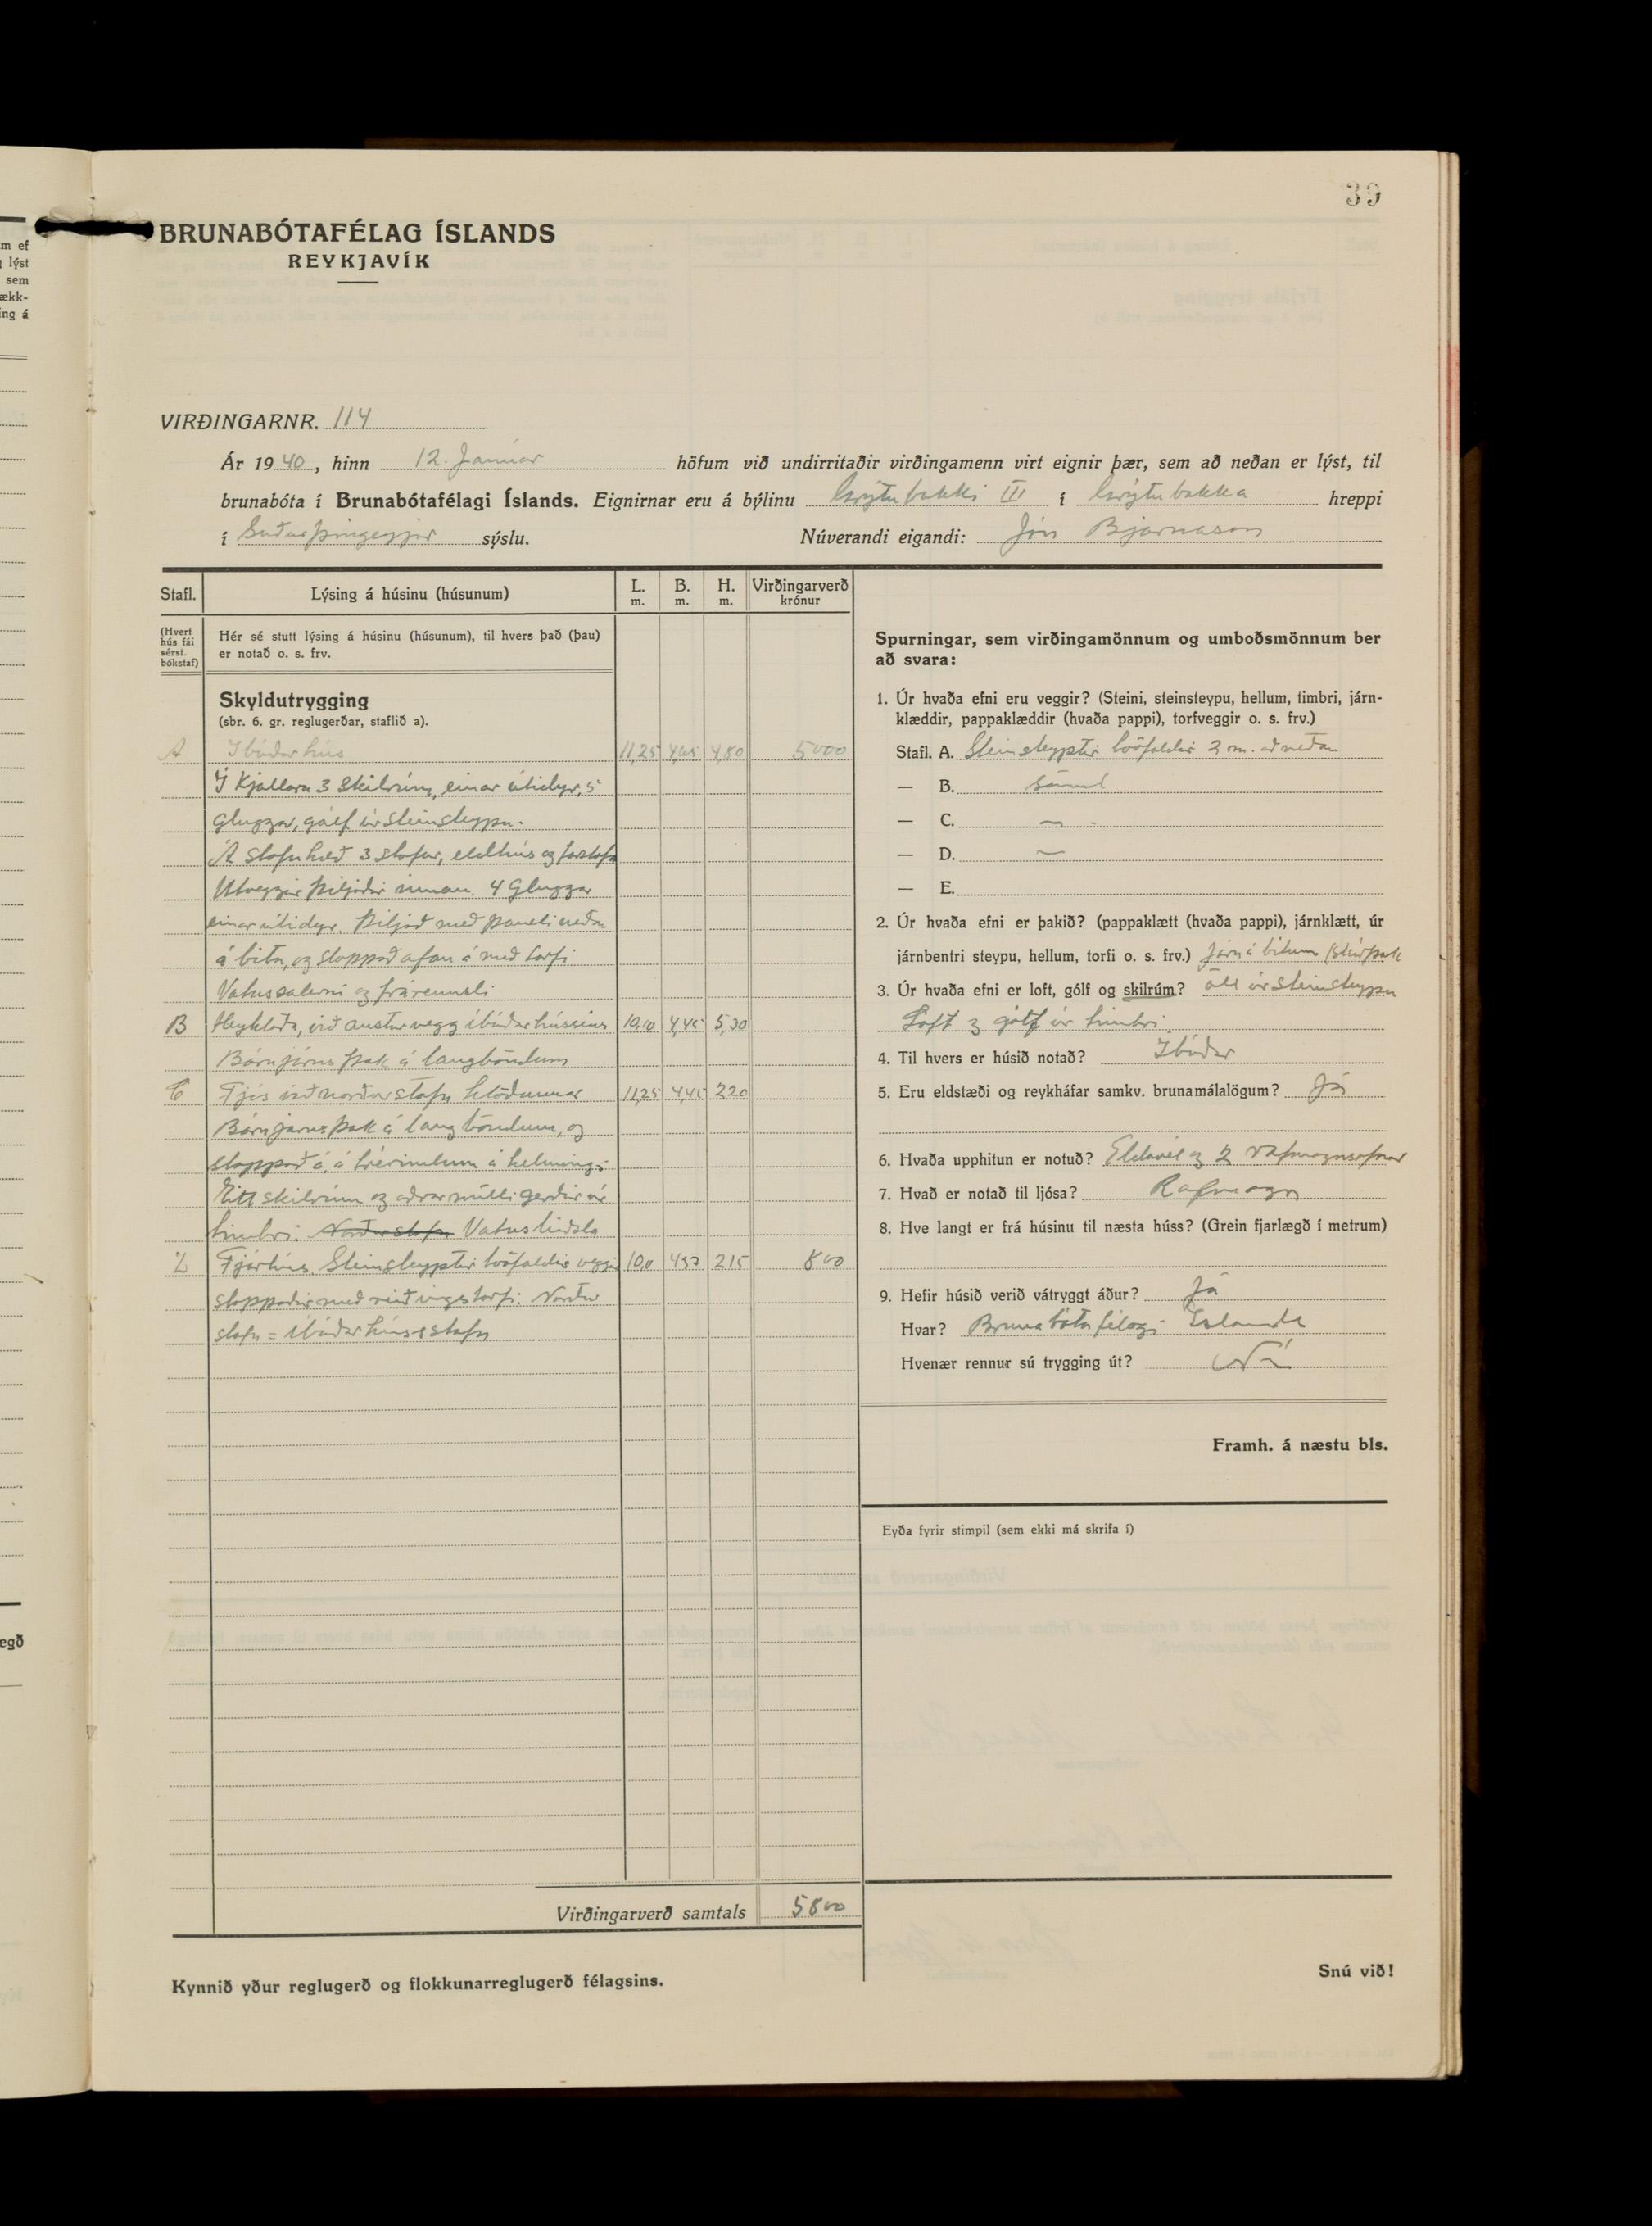 39
BRUNABÓTAFÉLAG ÍSLANDS
REYKJAVÍK
VIRÐINGARNR. 114
Ár 1940, hinn 12. Janúar höfum við undirritaðir virðingamenn virt eignir þær, sem að neðan er lýst, til
brunabóta í Brunabótafélagi Íslands. Eignirnar eru á býlinu Grýtubakki III í Grýtubakka hreppi
í Suðurþingeyjar sýslu. Núverandi eigandi: Jón Bjarnason
Stafl. Lýsing á húsinu (húsunum) L. m. B. m. H. m. Virðingarverð krónur
(Hvert hús fái sérst. bókstaf)
Hér sé stutt lýsing á húsinu (húsunum), til hvers það (þau)
er notað o. s. frv.
Skyldutrygging
(sbr. 6. gr. reglugerðar, staflið a).
A Íbúðarhús 11,25 4,80 5000
Í Kjallara 3 skilrúm, einar útidyr, 5
gluggar, gólf úr steinsteypu.
Á stofuhæð 3 stofur, eldhús og forstofa
Útveggir þiljaðir innan. 4 Gluggar
einar útidyr. Þiljað með paneli neðan
á bita, og stoppað ofan á með torfi
Vatnssalerni og frárennsli
B Heyhlaða, við austurvegg íbúðarhússins 10,10 4,45 5,30
Bárujárns þak á langböndum
C Fjós við norðurstafn hlöðunnar 11,25 4,45 2,20
Bárujárns þak á langböndum, og
stoppað á, á trérimlum á helmingi
Eitt skilrúm og aðrar milli gerðir úr
timbri. Norðurstafn Vatnsleiðsla
Fjárhús. Steinsteyptir tvöfaldir veggir 10,0 2,15 800
stoppaðir með reiðingstorfi. Norður
stafn = íbúðarhússstafn
Virðingarverð samtals 5800
Kynnið yður reglugerð og flokkunarreglugerð félagsins.
Spurningar, sem virðingamönnum og umboðsmönnum ber
að svara:
1. Úr hvaða efni eru veggir? (Steini, steinsteypu, hellum, timbri, járn-
klæddir, pappaklæddir (hvaða pappi), torfveggir o. s. frv.)
Stafl. A. Steinsteyptir tvöfaldir 2 m. að neðan
— B. sama
— C. 〃
— D. 〃
— E.
2. Úr hvaða efni er þakið? (pappaklætt (hvaða pappi), járnklætt, úr
járnbentri steypu, hellum, torfi o. s. frv.) Járn á bitum (skúrþak
3. Úr hvaða efni er loft, gólf og skilrúm? öll úr steinsteypu
Loft og gólf úr timbri.
4. Til hvers er húsið notað? Íbúðar
5. Eru eldstæði og reykháfar samkv. brunamálalögum? Já
6. Hvaða upphitun er notuð? Eldavél og 2 rafmagnsofnar
7. Hvað er notað til ljósa? Rafmagn
8. Hve langt er frá húsinu til næsta húss? (Grein fjarlægð í metrum)
9. Hefir húsið verið vátryggt áður? Já
Hvar? Brunabótafélagi Íslands
Hvenær rennur sú trygging út? Nú
Framh. á næstu bls.
Eyða fyrir stimpil (sem ekki má skrifa í)
Snú við!